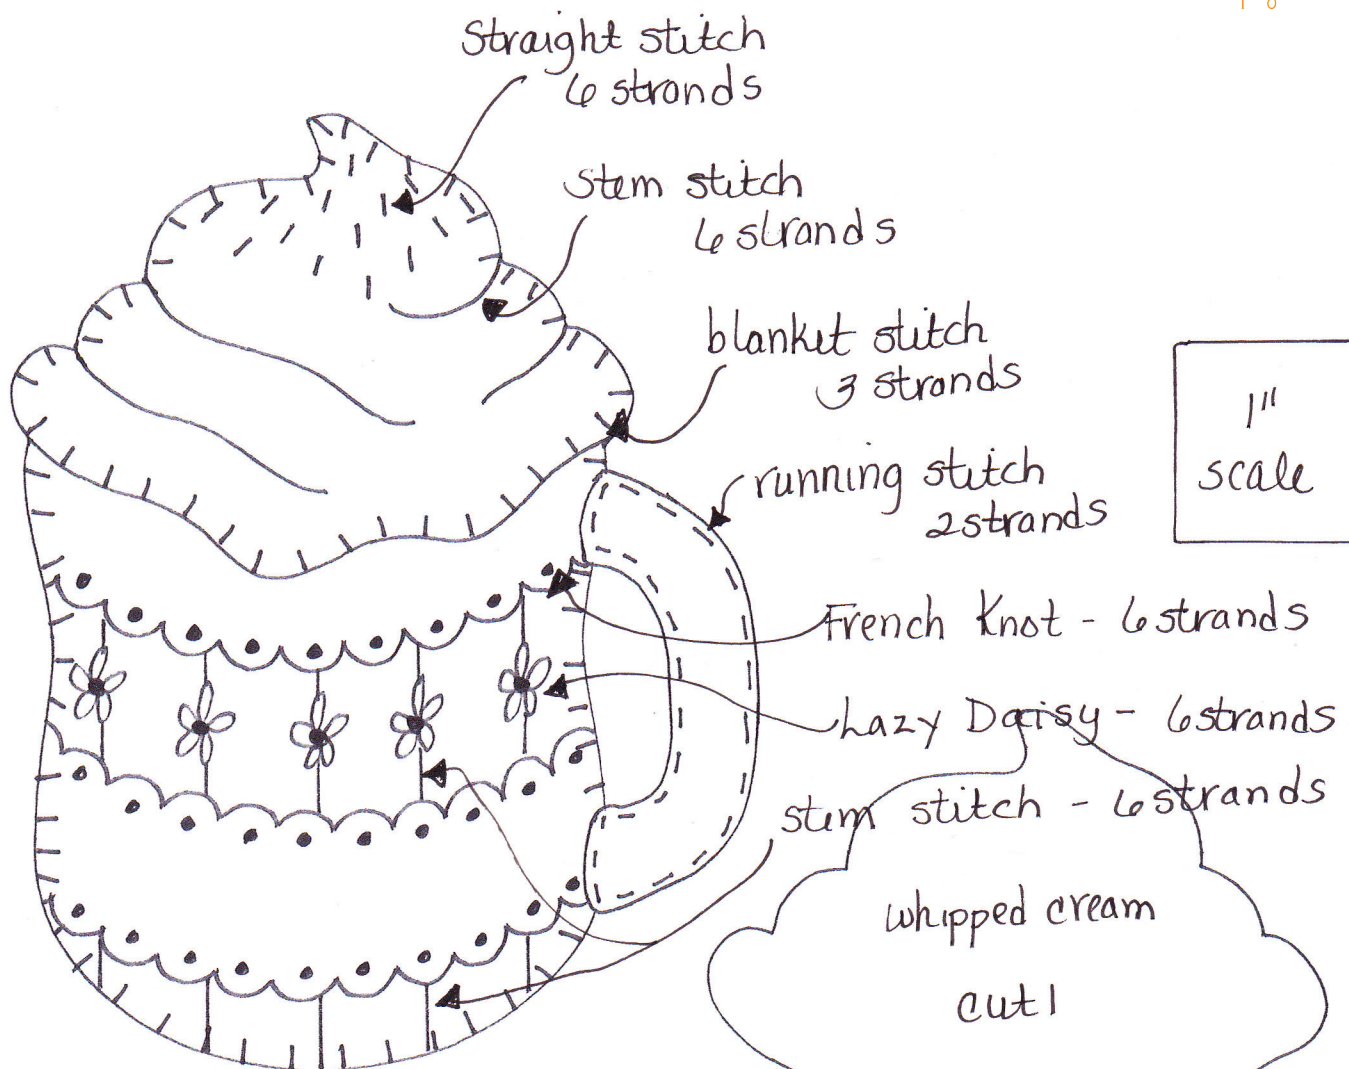 Straight stitch
6 strands
Stem stitch
6 strands
blanket stitch
3 strands
1"
scale
running stitch
2 strands
French Knot - 6 strands
Lazy Daisy - 6 strands
stem stitch - 6 strands
whipped cream
cut 1